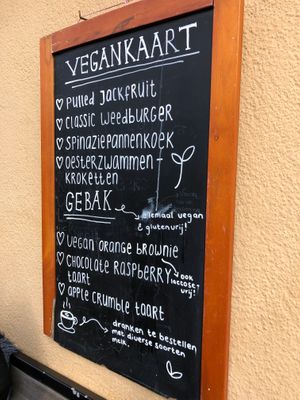 VEGANKAART
♡ PULLED JACKFRUIT
♡ CLASSIC WEEDBURGER
♡ SPINAZIEPANNENKOEK
♡ OESTERZWAMMEN-
KROKETTEN
GEBAK
helemaal vegan
& glutenvrij!
♡ VEGAN ORANGE BROWNIE
♡ CHOCOLATE RASPBERRY
TAART
ook
lactose?
vrij!
♡ APPLE CRUMBLE TAART
dranken te bestellen
met diverse soorten
melk.